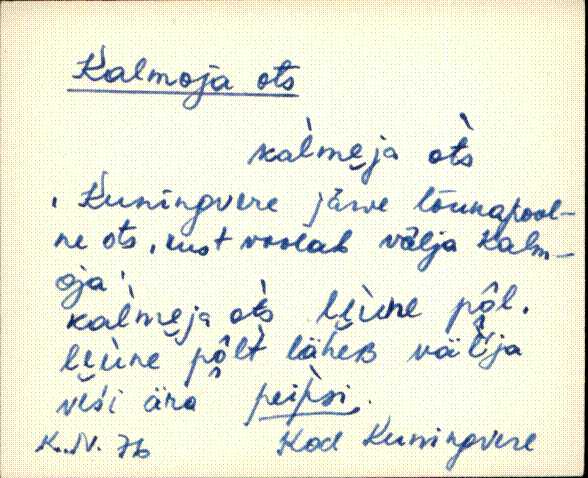 Kalmoja ots
kal̀mẹja ot̀s
' Kuningvere järve lõunapool-
ne ots, kust voolab välja Kalm-
oja '
kal̀mẹja ot̀s lẹ̀ùne pôl.
lẹ̀ùne pôlt̀ läheʙ väl̀ja
vẹśi ära peip̀si.
K.N. 76 Kod Kuningvere